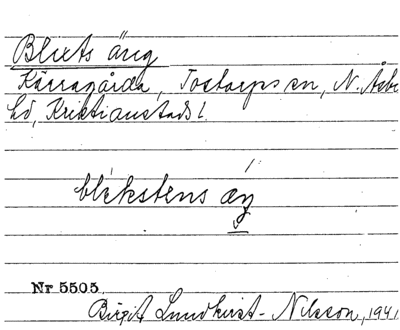 Blixts äng
Kärragårda, Tostarps sn, N. Åsbo
hd, Kristianstads l.
blekstens äŋ
Nr 5505
Birgit Lundkvist-Nilsson, 1941